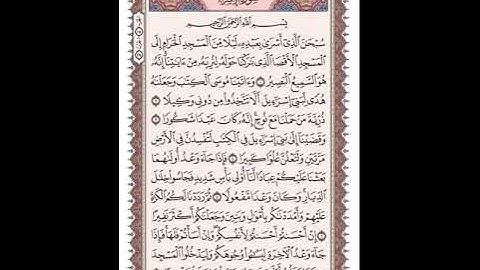 سورة الإسراء
بِسْمِ اللَّهِ الرَّحْمَٰنِ الرَّحِيمِ
سُبْحَٰنَ الَّذِي أَسْرَىٰ بِعَبْدِهِ لَيْلًا مِّنَ الْمَسْجِدِ الْحَرَامِ إِلَى
الْمَسْجِدِ الْأَقْصَا الَّذِي بَٰرَكْنَا حَوْلَهُ لِنُرِيَهُ مِنْ ءَايَٰتِنَا إِنَّهُ
هُوَ السَّمِيعُ الْبَصِيرُ ١ وَءَاتَيْنَا مُوسَى الْكِتَٰبَ وَجَعَلْنَٰهُ
هُدًى لِّبَنِي إِسْرَٰٓءِيلَ أَلَّا تَتَّخِذُوا مِن دُونِي وَكِيلًا ٢
ذُرِّيَّةَ مَنْ حَمَلْنَا مَعَ نُوحٍ إِنَّهُ كَانَ عَبْدًا شَكُورًا ٣
وَقَضَيْنَا إِلَىٰ بَنِي إِسْرَٰٓءِيلَ فِي الْكِتَٰبِ لَتُفْسِدُنَّ فِي الْأَرْضِ
مَرَّتَيْنِ وَلَتَعْلُنَّ عُلُوًّا كَبِيرًا ٤ فَإِذَا جَاءَ وَعْدُ أُولَىٰهُمَا
بَعَثْنَا عَلَيْكُمْ عِبَادًا لَّنَا أُولِي بَأْسٍ شَدِيدٍ فَجَاسُوا خِلَٰلَ
الدِّيَارِ وَكَانَ وَعْدًا مَّفْعُولًا ٥ ثُمَّ رَدَدْنَا لَكُمُ الْكَرَّةَ
عَلَيْهِمْ وَأَمْدَدْنَٰكُم بِأَمْوَٰلٍ وَبَنِينَ وَجَعَلْنَٰكُمْ أَكْثَرَ نَفِيرًا
٦ إِنْ أَحْسَنتُمْ أَحْسَنتُمْ لِأَنفُسِكُمْ وَإِنْ أَسَأْتُمْ فَلَهَا فَإِذَا
جَاءَ وَعْدُ الْءَاخِرَةِ لِيَسُـُٔوا وُجُوهَكُمْ وَلِيَدْخُلُوا الْمَسْجِدَ